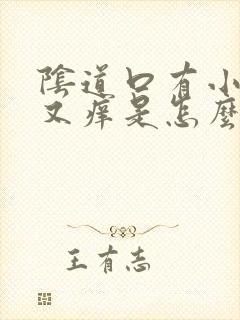 陰道口有小
又痒是怎麼
王有志